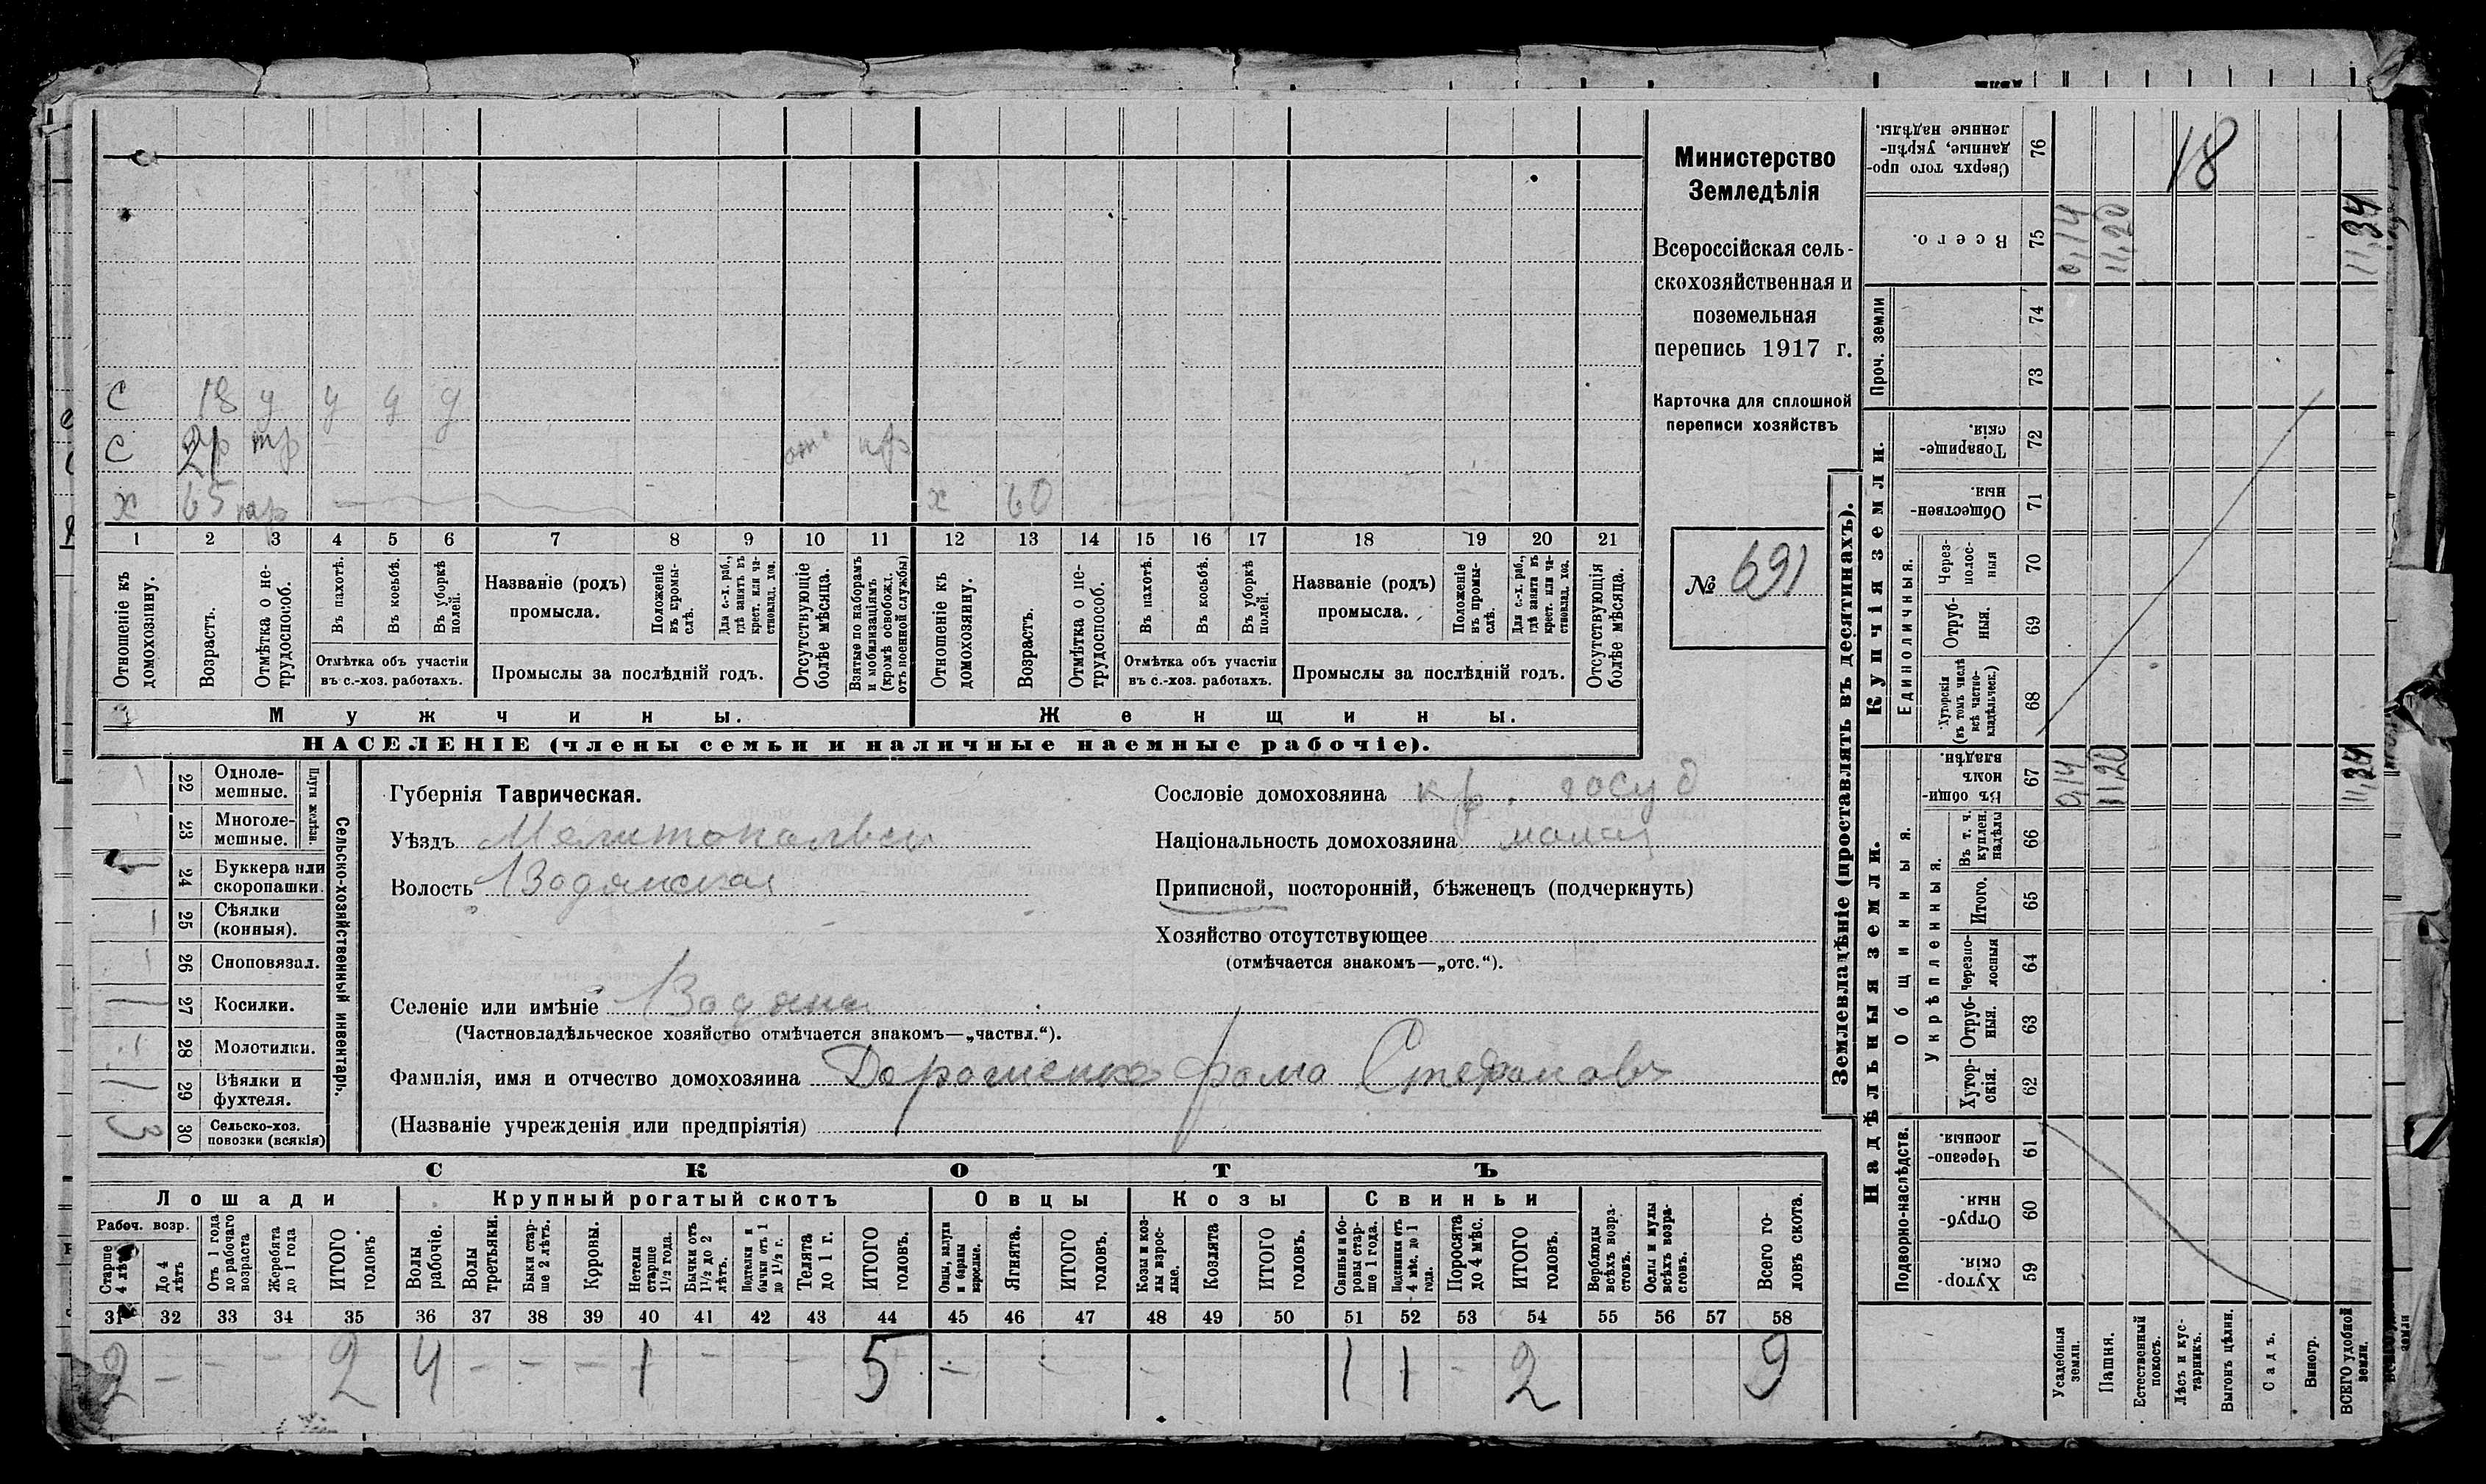 С 18 у у у у
С 21 тр
х 65 х 60
1 2 3 4 5 6 7 8 9 10 11 12 13 14 15 16 17 18 19 20 21
Отношеніе къ домохозяину.
Возрастъ.
Отмѣтка о не-трудоспособ.
Въ пахотѣ.
Въ косьбѣ.
Въ уборкѣ полей.
Отмѣтка объ участіи
въ с.-хоз. работахъ.
Названіе (родъ)
промысла.
Положеніе въ промы-слѣ.
Для с.-х. раб., гдѣ занятъ въ крест. или ча-стновлад. хоз.
Промыслы за послѣдній годъ.
Отсутствующіе болѣе мѣсяца.
Взятые по наборамъ и мобилизаціямъ (кромѣ освобожд. отъ военной службы)
Отношеніе къ домохозяину.
Возрастъ.
Отмѣтка о не-трудоспособ.
Въ пахотѣ.
Въ косьбѣ.
Въ уборкѣ полей.
Отмѣтка объ участіи
въ с.-хоз. работахъ.
Названіе (родъ)
промысла.
Положеніе въ промы-слѣ.
Для с.-х. раб., гдѣ занята въ крест. или ча-стновлад. хоз.
Промыслы за послѣдній годъ.
Отсутствующія болѣе мѣсяца.
Мужчины. Женщины.
НАСЕЛЕНІЕ (члены семьи и наличные наемные рабочіе).
Министерство
Земледѣлія
Всероссійская сель-
скохозяйственная и
поземельная
перепись 1917 г.
Карточка для сплошной
переписи хозяйствъ
№ 691
22 Одноле-мешные.
23 Многоле-мешные.
Плуги желѣзн.
24 Буккера или скоропашки.
25 Сѣялки (конныя).
26 Сноповязал.
27 Косилки.
28 Молотилки.
29 Вѣялки и фухтеля.
30 Сельско-хоз. повозки (всякія) 3
Сельско-хозяйственный инвентарь.
Губернія Таврическая.
Уѣздъ Мелитопольск
Волость Водянская
Селеніе или имѣніе Водяна
(Частновладѣльческое хозяйство отмѣчается знакомъ—„частвл.“).
Фамилія, имя и отчество домохозяина Дорошенко Фома Стефановъ
(Названіе учрежденія или предпріятія)
Сословіе домохозяина кр. госуд
Національность домохозяина малор
Приписной, посторонній, бѣженецъ (подчеркнуть)
Хозяйство отсутствующее
(отмѣчается знакомъ—„отс.“).
СКОТЪ
Лошади Крупный рогатый скотъ Овцы Козы Свиньи
Рабоч. возр.
Старше 4 лѣтъ
До 4 лѣтъ
Отъ 1 года до рабочаго возраста
Жеребята до 1 года
ИТОГО головъ
Волы рабочіе.
Волы третьяки.
Быки стар-ше 2 лѣтъ.
Коровы.
Нетели старше 1½ года.
Бычки отъ 1½ до 2 лѣтъ.
Подтелки и бычки отъ 1 до 1½ г.
Телята до 1 г.
ИТОГО головъ.
Овцы, валухи и бараны взрослые.
Ягнята.
ИТОГО головъ.
Козы и коз-лы взрос-лые.
Козлята
ИТОГО головъ.
Свиньи и бо-ровы стар-ше 1 года.
Подсвинки отъ 4 мѣс. до 1 года.
Поросята до 4 мѣс.
ИТОГО головъ.
Верблюды всѣхъ возра-стовъ.
Ослы и мулы всѣхъ возра-стовъ.
Всего го-ловъ скота.
31 32 33 34 35 36 37 38 39 40 41 42 43 44 45 46 47 48 49 50 51 52 53 54 55 56 57 58
2 – – – 2 4 – – – 1 – – – 5 – – – 1 1 – 2 9
Землевладѣніе (проставлять въ десятинахъ).
Проч. земли
Купчія земли.
Единоличныя.
Надѣльныя земли.
Общинныя.
Укрѣпленныя.
Подворно-наслѣдств.
Сверхъ того про-данные, укрѣп-ленные надѣлы. 76 18
Всего. 75 0,14 11,20 11,34
74
73
Товарище-скія. 72
Обществен-ныя. 71
Через-полос-ныя 70
Отруб-ныя. 69
Хуторскія (въ томъ числѣ всѣ частно-владѣльческ.) 68
Въ общи-номъ владѣн. 67 0,14 11,20 11,34
Въ т. ч. куплен. надѣлы 66
Итого. 65
Черезпо-лосныя 64
Отруб-ныя. 63
Хутор-скія. 62
Черезпо-лосныя. 61
Отруб-ныя. 60
Хутор-скія. 59
Усадебныя земли.
Пашня.
Естественный покосъ.
Лѣсъ и кус-тарникъ.
Выгонъ цѣлин.
Садъ.
Виногр.
ВСЕГО удобной земли.